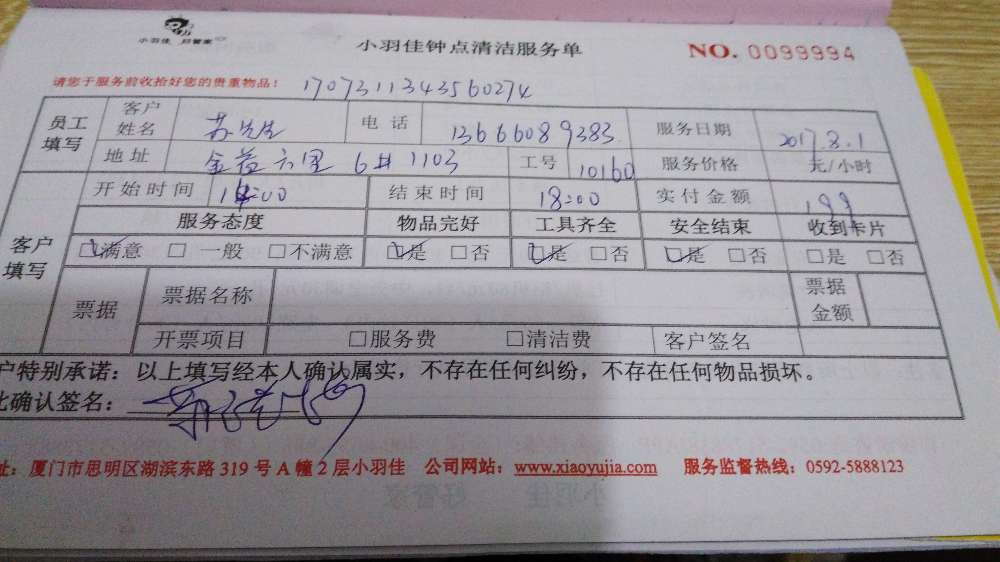 小羽佳 好管家
小羽佳钟点清洁服务单
NO. 0099994
请您于服务前收拾好您的贵重物品！ 1707311343560274
员工填写 客户姓名 苏先生 电话 13666089383 服务日期 2017.8.1
地址 金益六里 6# 1103 工号 10160 服务价格 元/小时
客户填写 开始时间 14:00 结束时间 18:00 实付金额 199
服务态度 物品完好 工具齐全 安全结束 收到卡片
☑满意 □一般 □不满意 ☑是 □否 ☑是 □否 ☑是 □否 □是 □否
票据 票据名称 票据金额
开票项目 □服务费 □清洁费 客户签名
户特别承诺：以上填写经本人确认属实，不存在任何纠纷，不存在任何物品损坏。
此确认签名：
址：厦门市思明区湖滨东路 319 号 A 幢 2 层小羽佳 公司网站：www.xiaoyujia.com 服务监督热线：0592-5888123